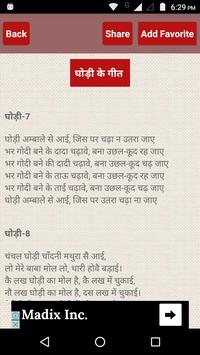 6:29 PM
Back
Share
Add Favorite
घोड़ी के गीत
घोड़ी-7
घोड़ी अम्बाले से आई, जिस पर चढ़ा न उतरा जाए
भर गोदी बने के दादा चढ़ावे, बना उछल-कूद रह जाए
भर गोदी बने की दादी चढ़ावे, बना उछल-कूद चढ़ जाए
भर गोदी बने के ताऊ चढ़ावे, बना उछल-कूद रह जाए
भर गोदी बने के ताई चढ़ावे, बना उछल-कूद चढ़ जाए
घोड़ी अम्बाले से आई, जिस पर उतरा चढ़ा ना जाए
घोड़ी-8
चंचल घोड़ी चाँदनी मथुरा सै आई,
लो मेरे बाबा मोल लो, थारी होवै बड़ाई।
कै लख घोड़ी का मोल है, कै लख में चुकाई,
नौ लख घोड़ी का मोल है, दस लख में चुकाई।
Madix Inc.